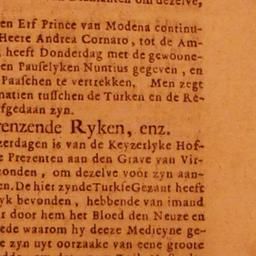 om dezelve,
en Erf Prince van Modena continu-
Heere Andrea Cornaro, tot de Am-
, heeft Donderdag met de gewoone-
en Pauselyken Nuntius gegeven, en
Paaschen te vertrekken. Men zegt
natien tusschen de Turken en de Re-
fgedaan zyn.
renzende Ryken, enz.
zerdagen is van de Keyzerlyke Hof-
e Prezenten aan den Grave van Vir-
onden, om dezelve vóór zyn aan-
en. De hier zynde Turkse Gezant heeft
yk bevonden, hebbende van imand
r door hem het Bloed den Neuze en
ede waarom hy deeze Medicyne ge-
e zyn uyt oorzaake van eene groote